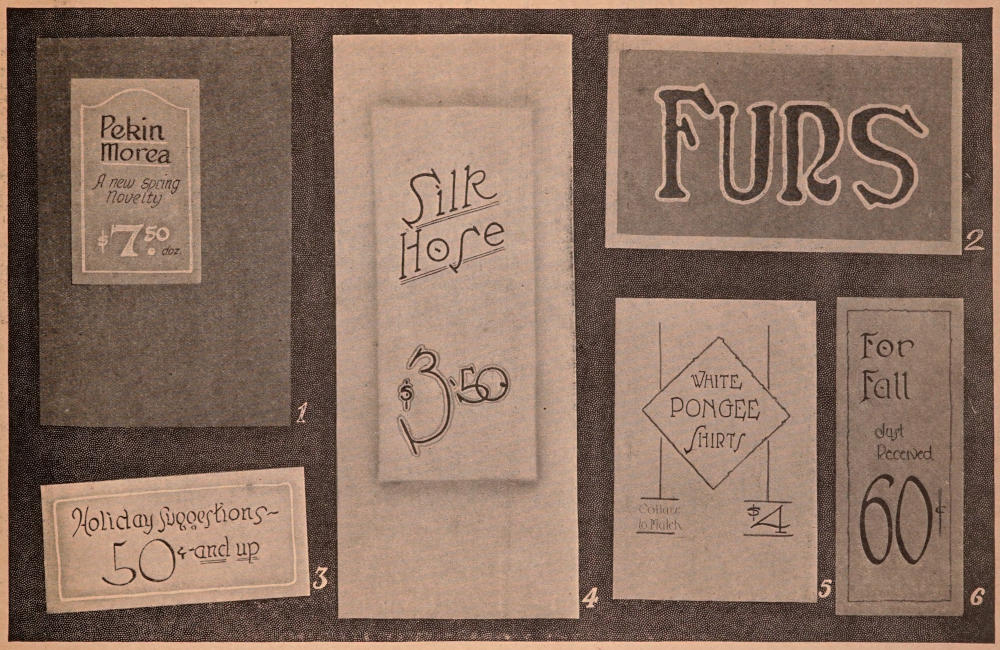 Pekin
Morea
A new spring
Novelty
$7.50 doz.
1
FURS
2
Holiday Suggestions~
50¢-and up
3
Silk
Hose
$3.50
4
WHITE
PONGEE
SHIRTS
Collars
to Match
$4
5
For
Fall
Just
Received
60¢
6